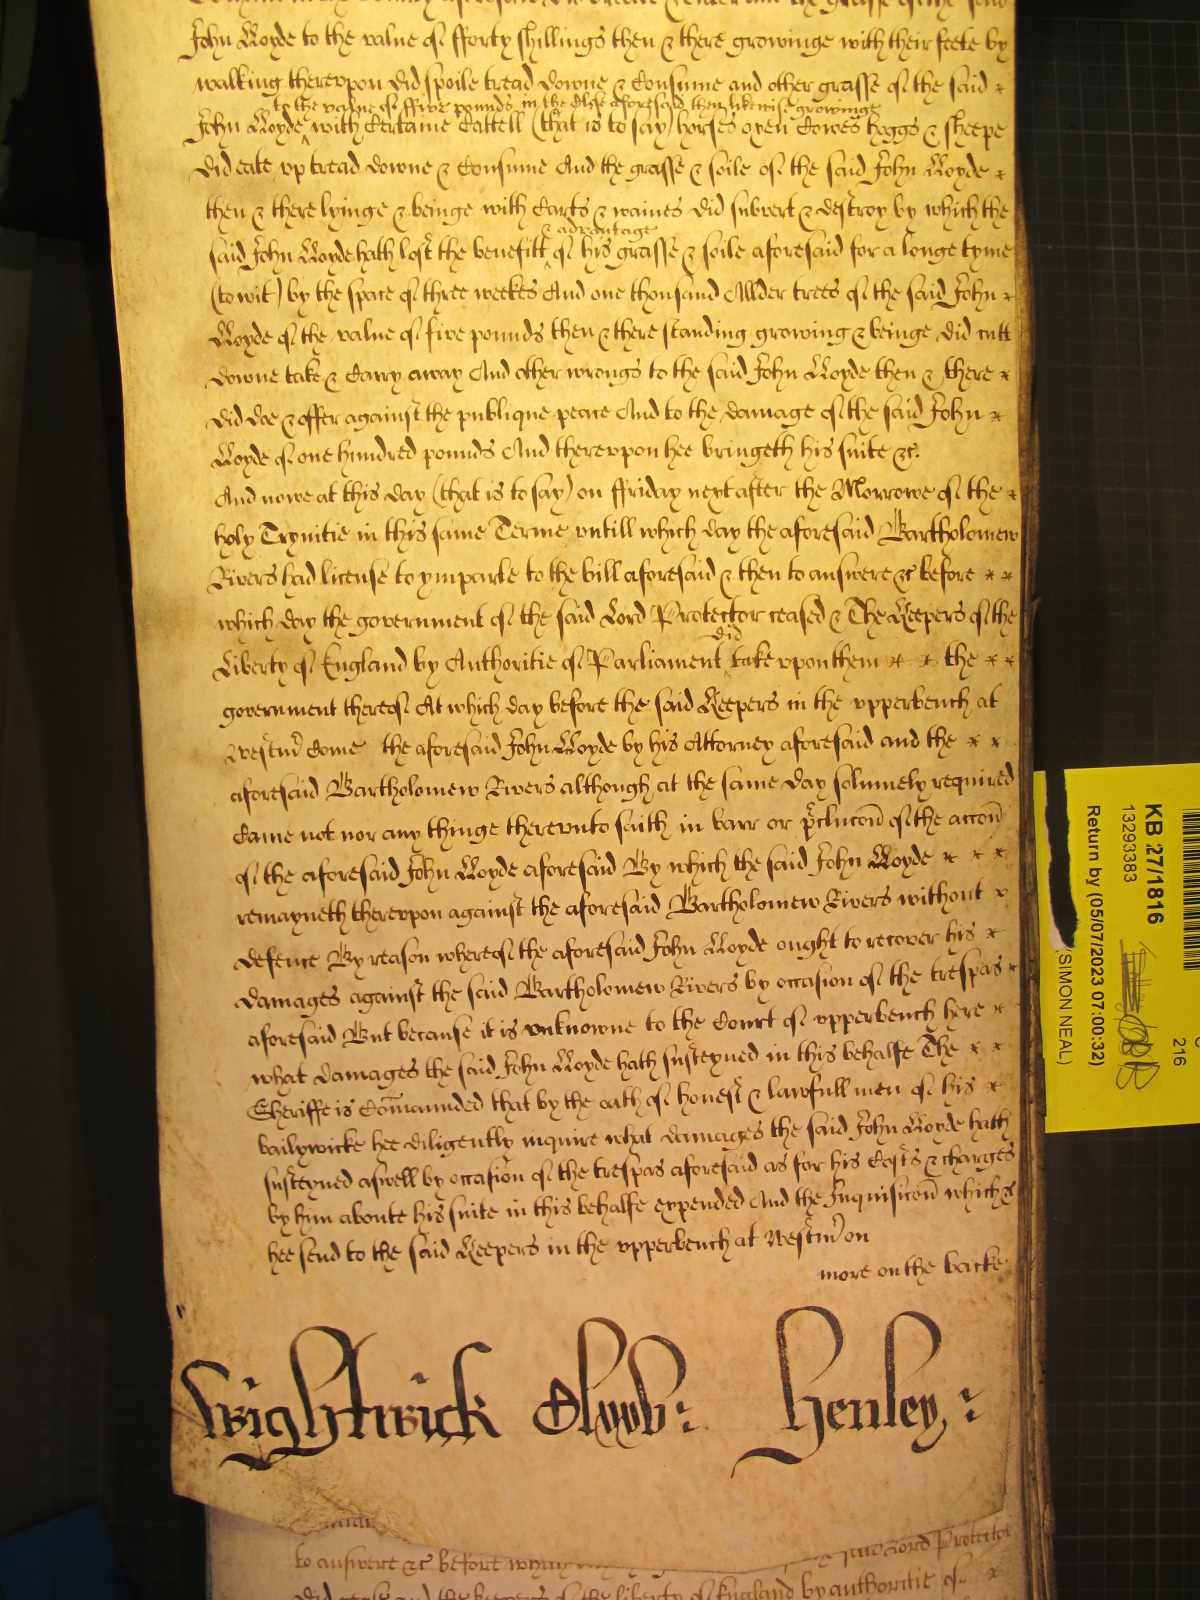 John Lloyde to the value of fforty shillings then & there growinge with their feete by
walking therevpon did spoile tread downe & Consume and other grasse of the said
to the value of ffive pounds in the place aforesaid then likewise growinge
John Lloyde with Certaine Cattell (that is to say) horses oxen Cowes hoggs & sheepe
did eate vp tread downe & Consume And the grasse & soile of the said John Lloyde
then & there lyinge & beinge with Carts & waines did subvert & destroy by which the
& advantage
said John Lloyde hath lost the benefitt of his grasse & soile aforesaid for a longe tyme
(to wit) by the space of three weekes And one thousand Allder trees of the said John
Lloyde of the value of five pounds then & there standing growing & beinge did cutt
downe take & Carry away And other wrongs to the said John Lloyde then & there
did doe & offer against the publique peace And to the damage of the said John
Lloyde of one hundred pounds And therevpon hee bringeth his suite &c.
And nowe at this day (that is to say) on ffriday next after the Morrowe of the
holy Trynitie in this same Terme vntill which day the aforesaid Bartholomew
Rivers had license to ymparle to the bill aforesaid & then to answere &c before
which day the government of the said Lord Protector ceased & The Keepers of the
did
Liberty of England by Authoritie of Parliament take vpon them the
government thereof At which day before the said Keepers in the vpperbench at
Westmr Come the aforesaid John Lloyde by his Attorney aforesaid and the
aforesaid Bartholomew Rivers although at the same day solmnely required
Came not nor any thinge therevnto saith in barr or preclucon of the accon
of the aforesaid John Lloyde aforesaid By which the said John Lloyde
remayneth therevpon against the aforesaid Bartholomew Rivers without
defence By reason whereof the aforesaid John Lloyde ought to recover his
damages against the said Bartholomew Rivers by occasion of the trespas
aforesaid But because it is vnknowne to the Court of vpperbench here
what damages the said John Lloyde hath susteyned in this behalfe The
Sheriffe is Commaunded that by the oath of honest & lawfull men of his
bailywicke hee diligently inquire what damages the said John Lloyde hath
susteyned aswell by occasion of the trespas aforesaid as for his Costs & charges
by him aboute his suite in this behalfe expended And the Inquisicon which &c
hee send to the said Keepers in the vpperbench at Westmr on
more on the backe
Wightwick Henley
to answere &c before Lord Protector
the keepers of the liberty of England by authoritie of
KB 27/1816
13293383
Return by (05/07/2023 07:00:32)
(SIMON NEAL)
216